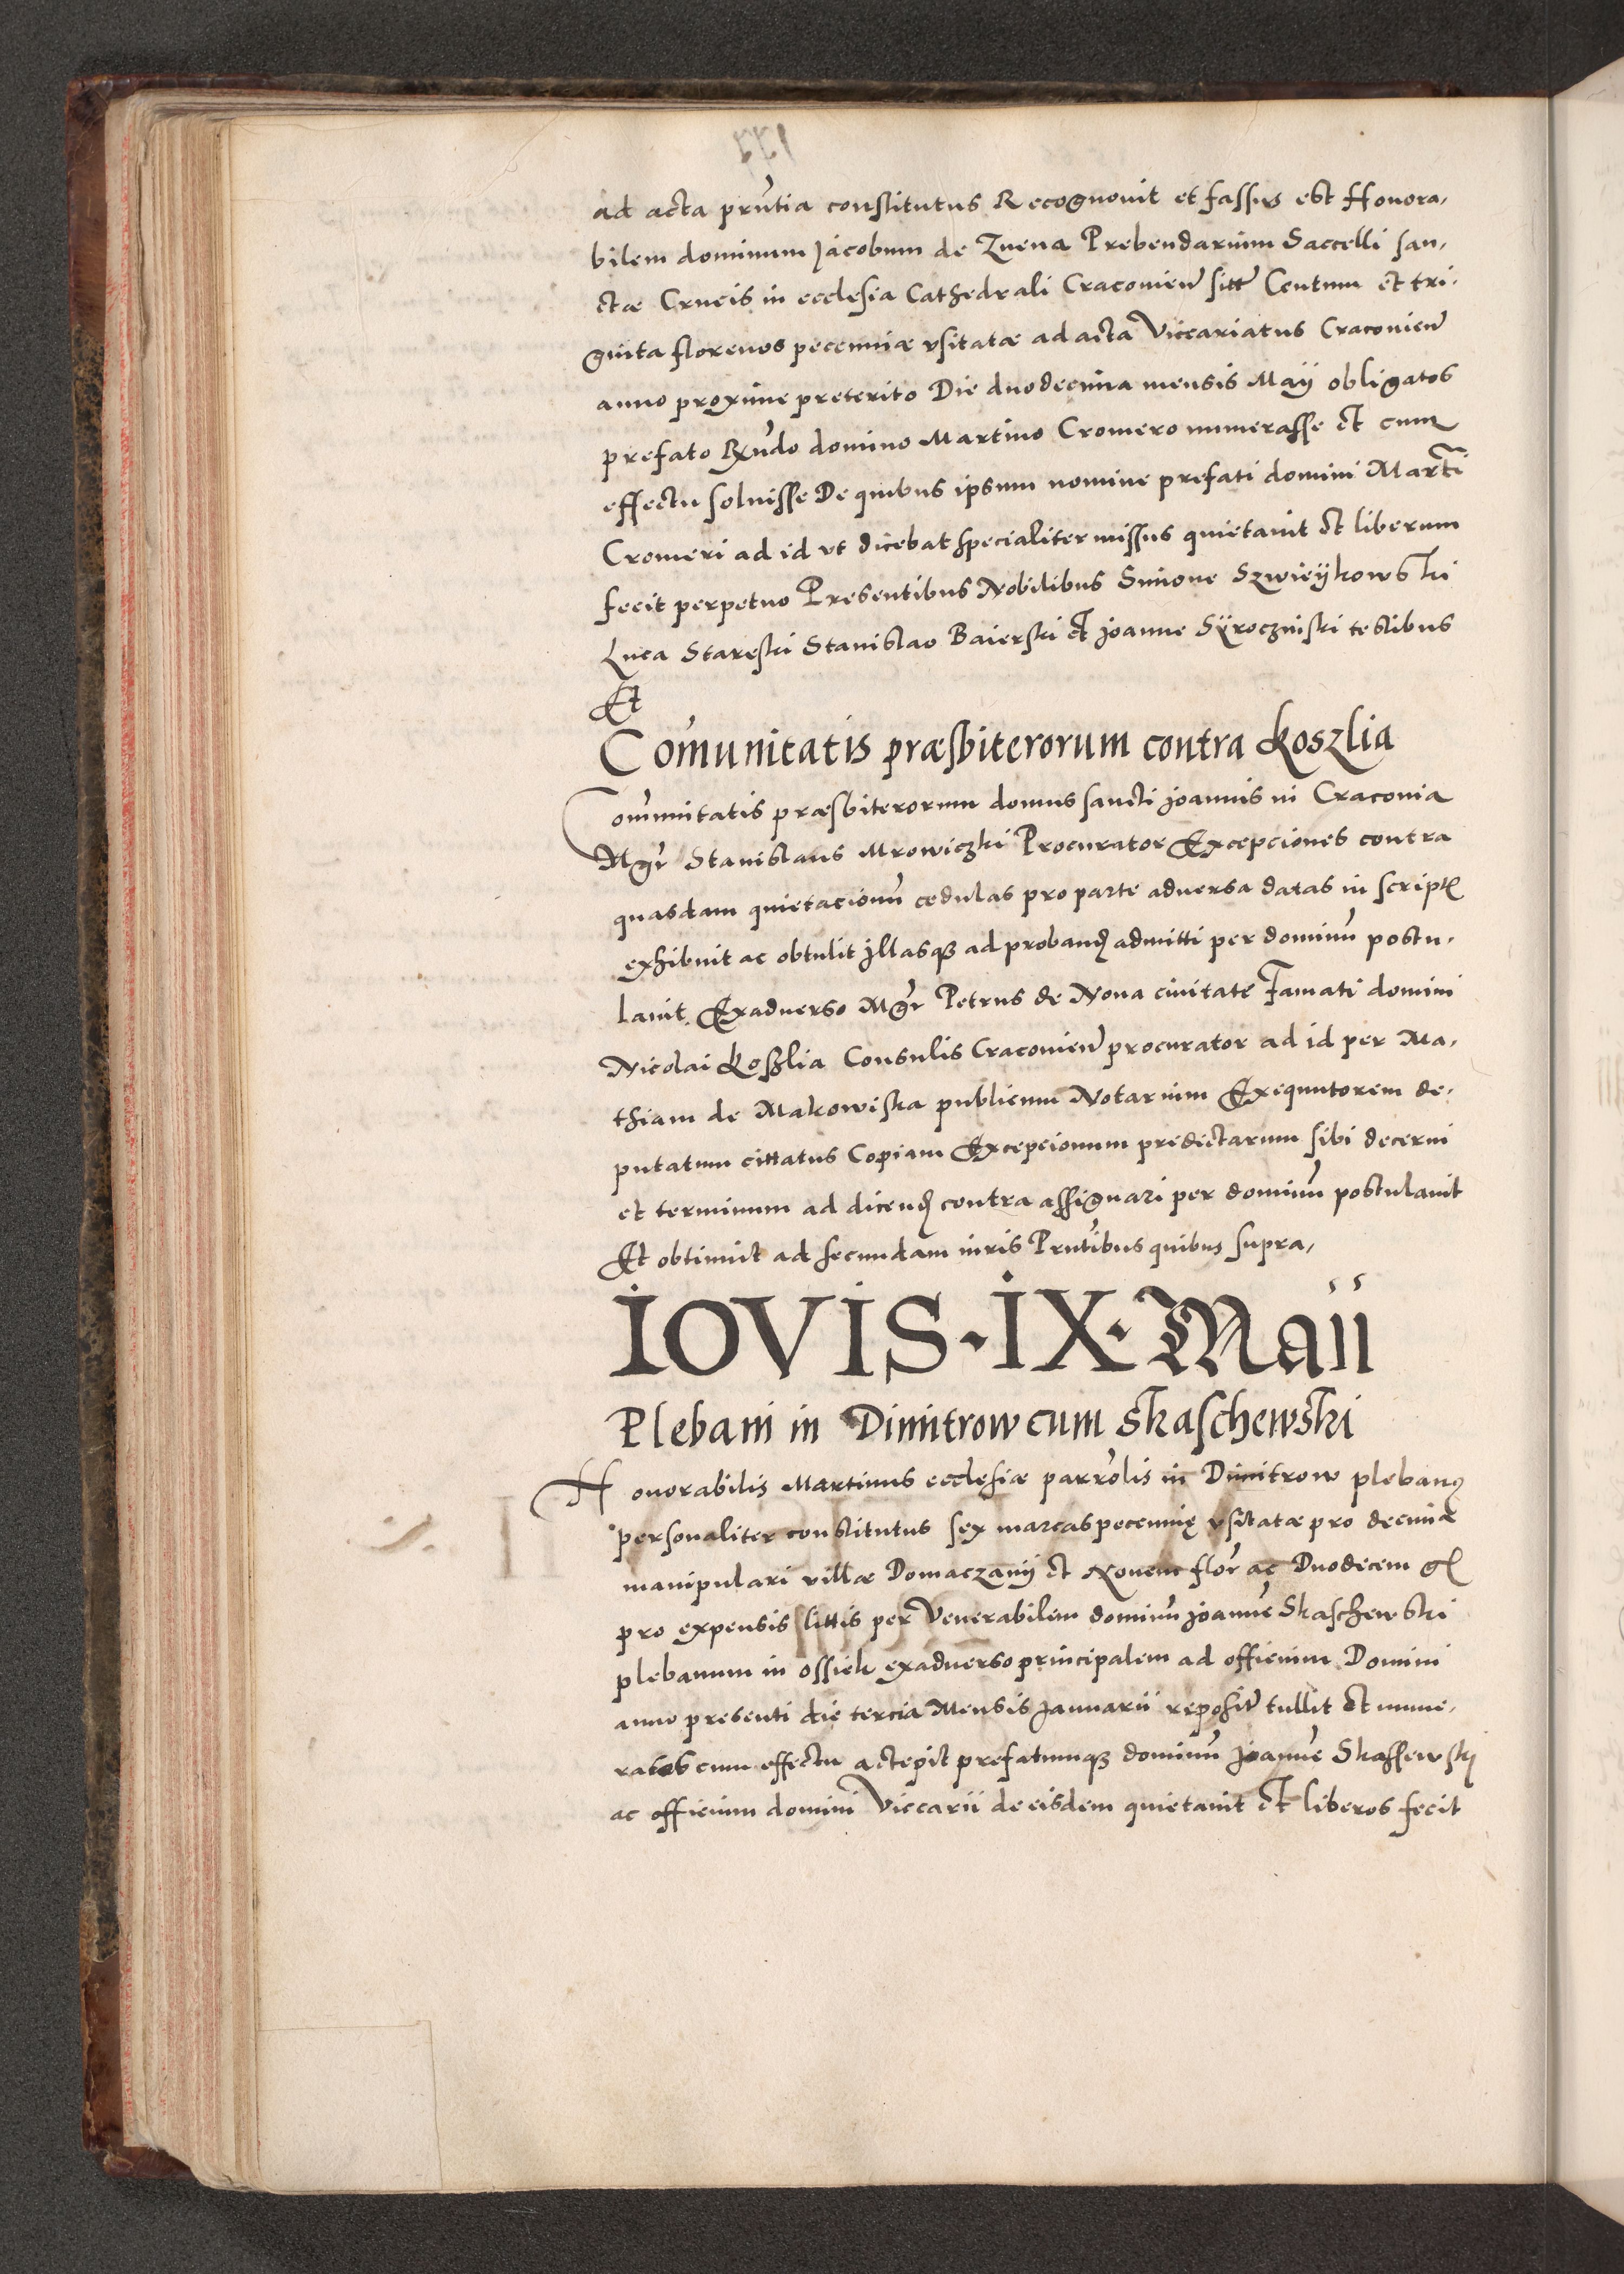 ad acta prñtia constitutus Recognovit et fassus est Honora,
bilem dominum Jacobum de Zuena Prebendarium Saccelli san,
ctæ Crucis in ecclesia Cathedrali Cracovieñ sitt Centum et tri-
ginta florenos pecenniæ vsitatæ ad acta Viccariatus Cracovieñ
anno proxime preterito Die duodecima mensis Maÿ obligatos
prefato Rx̃ndo domino Martino Cromero numerasse et cum
effectu solvisse De quibus ipsum nomine prefati domini Marti
Cromeri ad id vt dicebat specialiter missus quietavit et liberum
fecit perpetuo Presentibus Nobilibus Simone Szwieÿkowski
Luca Stareski Stanislao Baierski et Joanne Sÿroczniski testibus
Et
Com̃unitatis præsbiterorum contra Koszlia
Com̃unitatis præsbiterorum domus sancti Joannis in Craconia
Mgr̃ Stanislaus Mrowiczki Procurator Excepciones contra
quasdam quietacionũ cedulas pro parte adversa datas in script
exhibuit ac obtulit illasq; ad proband admitti per dominũ postu-
lavit. Exadverso Mgr̃ Petrus de Nova civitate Famati domini
Nicolai Koszlia Consulis Cracovieñ procurator ad id per Ma,
thiam de Makowiska publicum Notarium Exequutorem de-
putatum cittatus Copiam Excepcionum predictarum sibi decerni
et terminum ad dicend contra assignari per dominũ postulavit
Et obtinuit ad secundam iuris Prñtibus quibus supra,
IOVIS · IX · Maii
Plebani in Dimitrow cum Skaschewski
Honorabilis Martinus ecclesiæ parrolis in Dimitrow plebanꝰ
personaliter constitutus sex marcas pecennię vsitatæ pro decima
manipulari villæ Domaczanÿ et Novem flor ac Duodecem g
pro expensis littis per Venerabilem dominũ Joannẽ Skaschewski
plebanum in Ossiek exadverso principalem ad officium Domini
anno presenti die tercia Mensis Januarii reposit tullit et nume,
ratos cum effectu actepit prefatumq; dominũ Joannẽ Skassewski
ac officium domini Viccarii de eisdem quietavit et liberos fecit